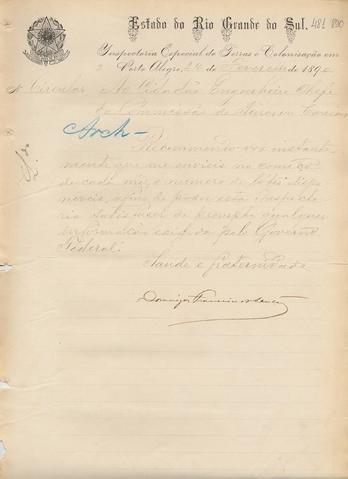 Estado do Rio Grande do Sul. 481
Inspectoria Especial de Terras e Colonisação em
Porto Alegre, 24 de Fevereiro de 1890
Circular Ao Cidadão Engenheiro Chefe
da Commissão de
Arch-
Recommendo-vos instante
mente que me envieis no começo
de cada mez o numero de lotes dispo
niveis, afim de poder esta inspecto
ria satisfazer de prompto qualquer
informação exigida pelo Governo
Federal.
Saude e fraternidade
Domingos Francisco